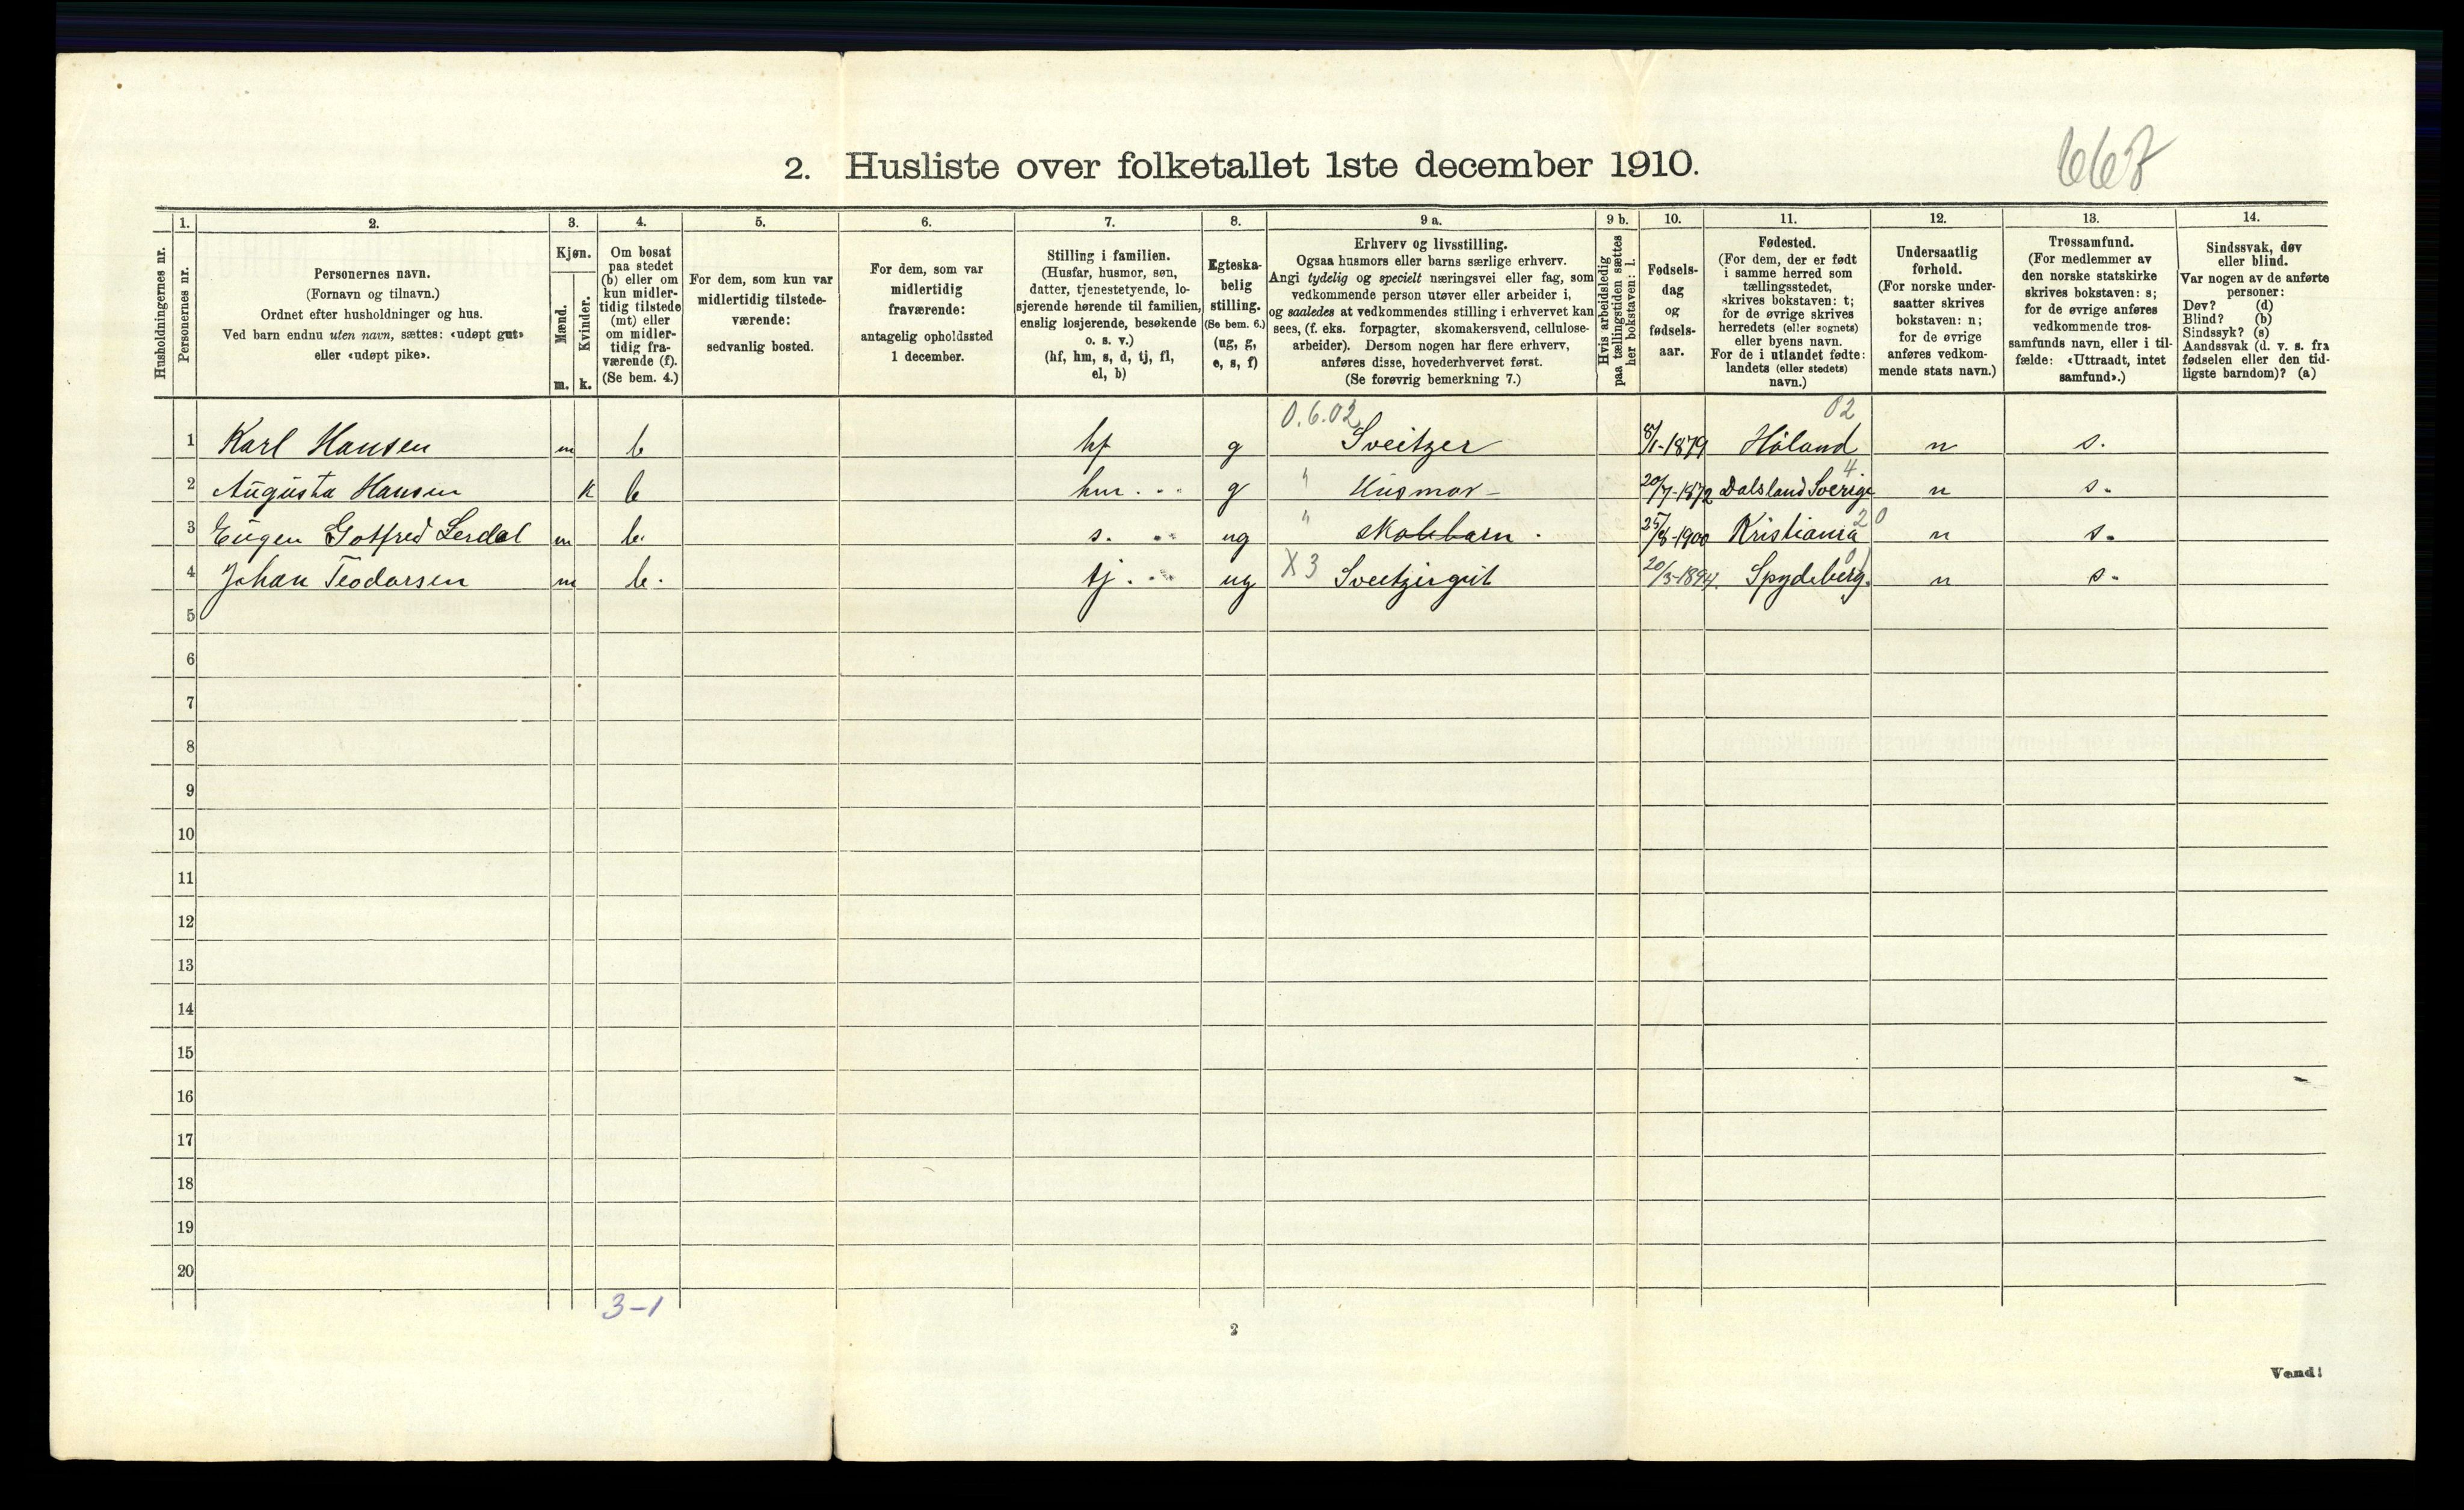 667
2. Husliste over folketallet 1ste december 1910.
Husholdningernes nr.
1.
Personernes nr.
2.
Personernes navn.
(Fornavn og tilnavn.)
Ordnet efter husholdninger og hus.
Ved barn endnu uten navn, sættes: «udøpt gut»
eller «udøpt pike».
3.
Kjøn.
Mænd.
Kvinder.
m. k.
4.
Om bosat
paa stedet
(b) eller om
kun midler-
tidig tilstede
(mt) eller
om midler-
tidig fra-
værende (f).
(Se bem. 4.)
5.
For dem, som kun var
midlertidig tilstede-
værende:
sedvanlig bosted.
6.
For dem, som var
midlertidig
fraværende:
antagelig opholdssted
1 december.
7.
Stilling i familien.
(Husfar, husmor, søn,
datter, tjenestetyende, lo-
sjerende hørende til familien,
enslig losjerende, besøkende
o. s. v.)
(hf, hm, s, d, tj, fl,
el, b)
8.
Egteska-
belig
stilling.
(Se bem. 6.)
(ug, g,
e, s, f)
9 a.
Erhverv og livsstilling.
Ogsaa husmors eller barns særlige erhverv.
Angi tydelig og specielt næringsvei eller fag, som
vedkommende person utøver eller arbeider i,
og saaledes at vedkommendes stilling i erhvervet kan
sees, (f. eks. forpagter, skomakersvend, cellulose-
arbeider). Dersom nogen har flere erhverv,
anføres disse, hovederhvervet først.
(Se forøvrig bemerkning 7.)
9 b.
Hvis arbeidsledig
paa tællingstiden sættes
her bokstaven: l.
10.
Fødsels-
dag
og
fødsels-
aar.
11.
Fødested.
(For dem, der er født
i samme herred som
tællingsstedet,
skrives bokstaven: t;
for de øvrige skrives
herredets (eller sognets)
eller byens navn.
For de i utlandet fødte:
landets (eller stedets)
navn.)
12.
Undersaatlig
forhold.
(For norske under-
saatter skrives
bokstaven: n;
for de øvrige
anføres vedkom-
mende stats navn.)
13.
Trossamfund.
(For medlemmer av
den norske statskirke
skrives bokstaven: s;
for de øvrige anføres
vedkommende tros-
samfunds navn, eller i til-
fælde: «Uttraadt, intet
samfund».)
14.
Sindssvak, døv
eller blind.
Var nogen av de anførte
personer:
Døv? (d)
Blind? (b)
Sindssyk? (s)
Aandssvak (d. v. s. fra
fødselen eller den tid-
ligste barndom)? (a)
0.6.02 02
1 Karl Hansen m b hf g Sveitzer 8/1-1879 Høland n s.
4.
2 Augusta Hansen k b hm. g " Husmor - 20/7-1872 Dalsland Sverige n s.
20
3 Eugen Gotfred Lerdal m b. s. ug " Skolebarn. 25/8-1900 Kristiania n s.
4 Johan Teodorsen m b. tj. ug X3 Sveitzirgut 20/3-1894. Spydeberg. n s.
5
6
7
8
9
10
11
12
13
14
15
16
17
18
19
20
3-1
2
Vend!